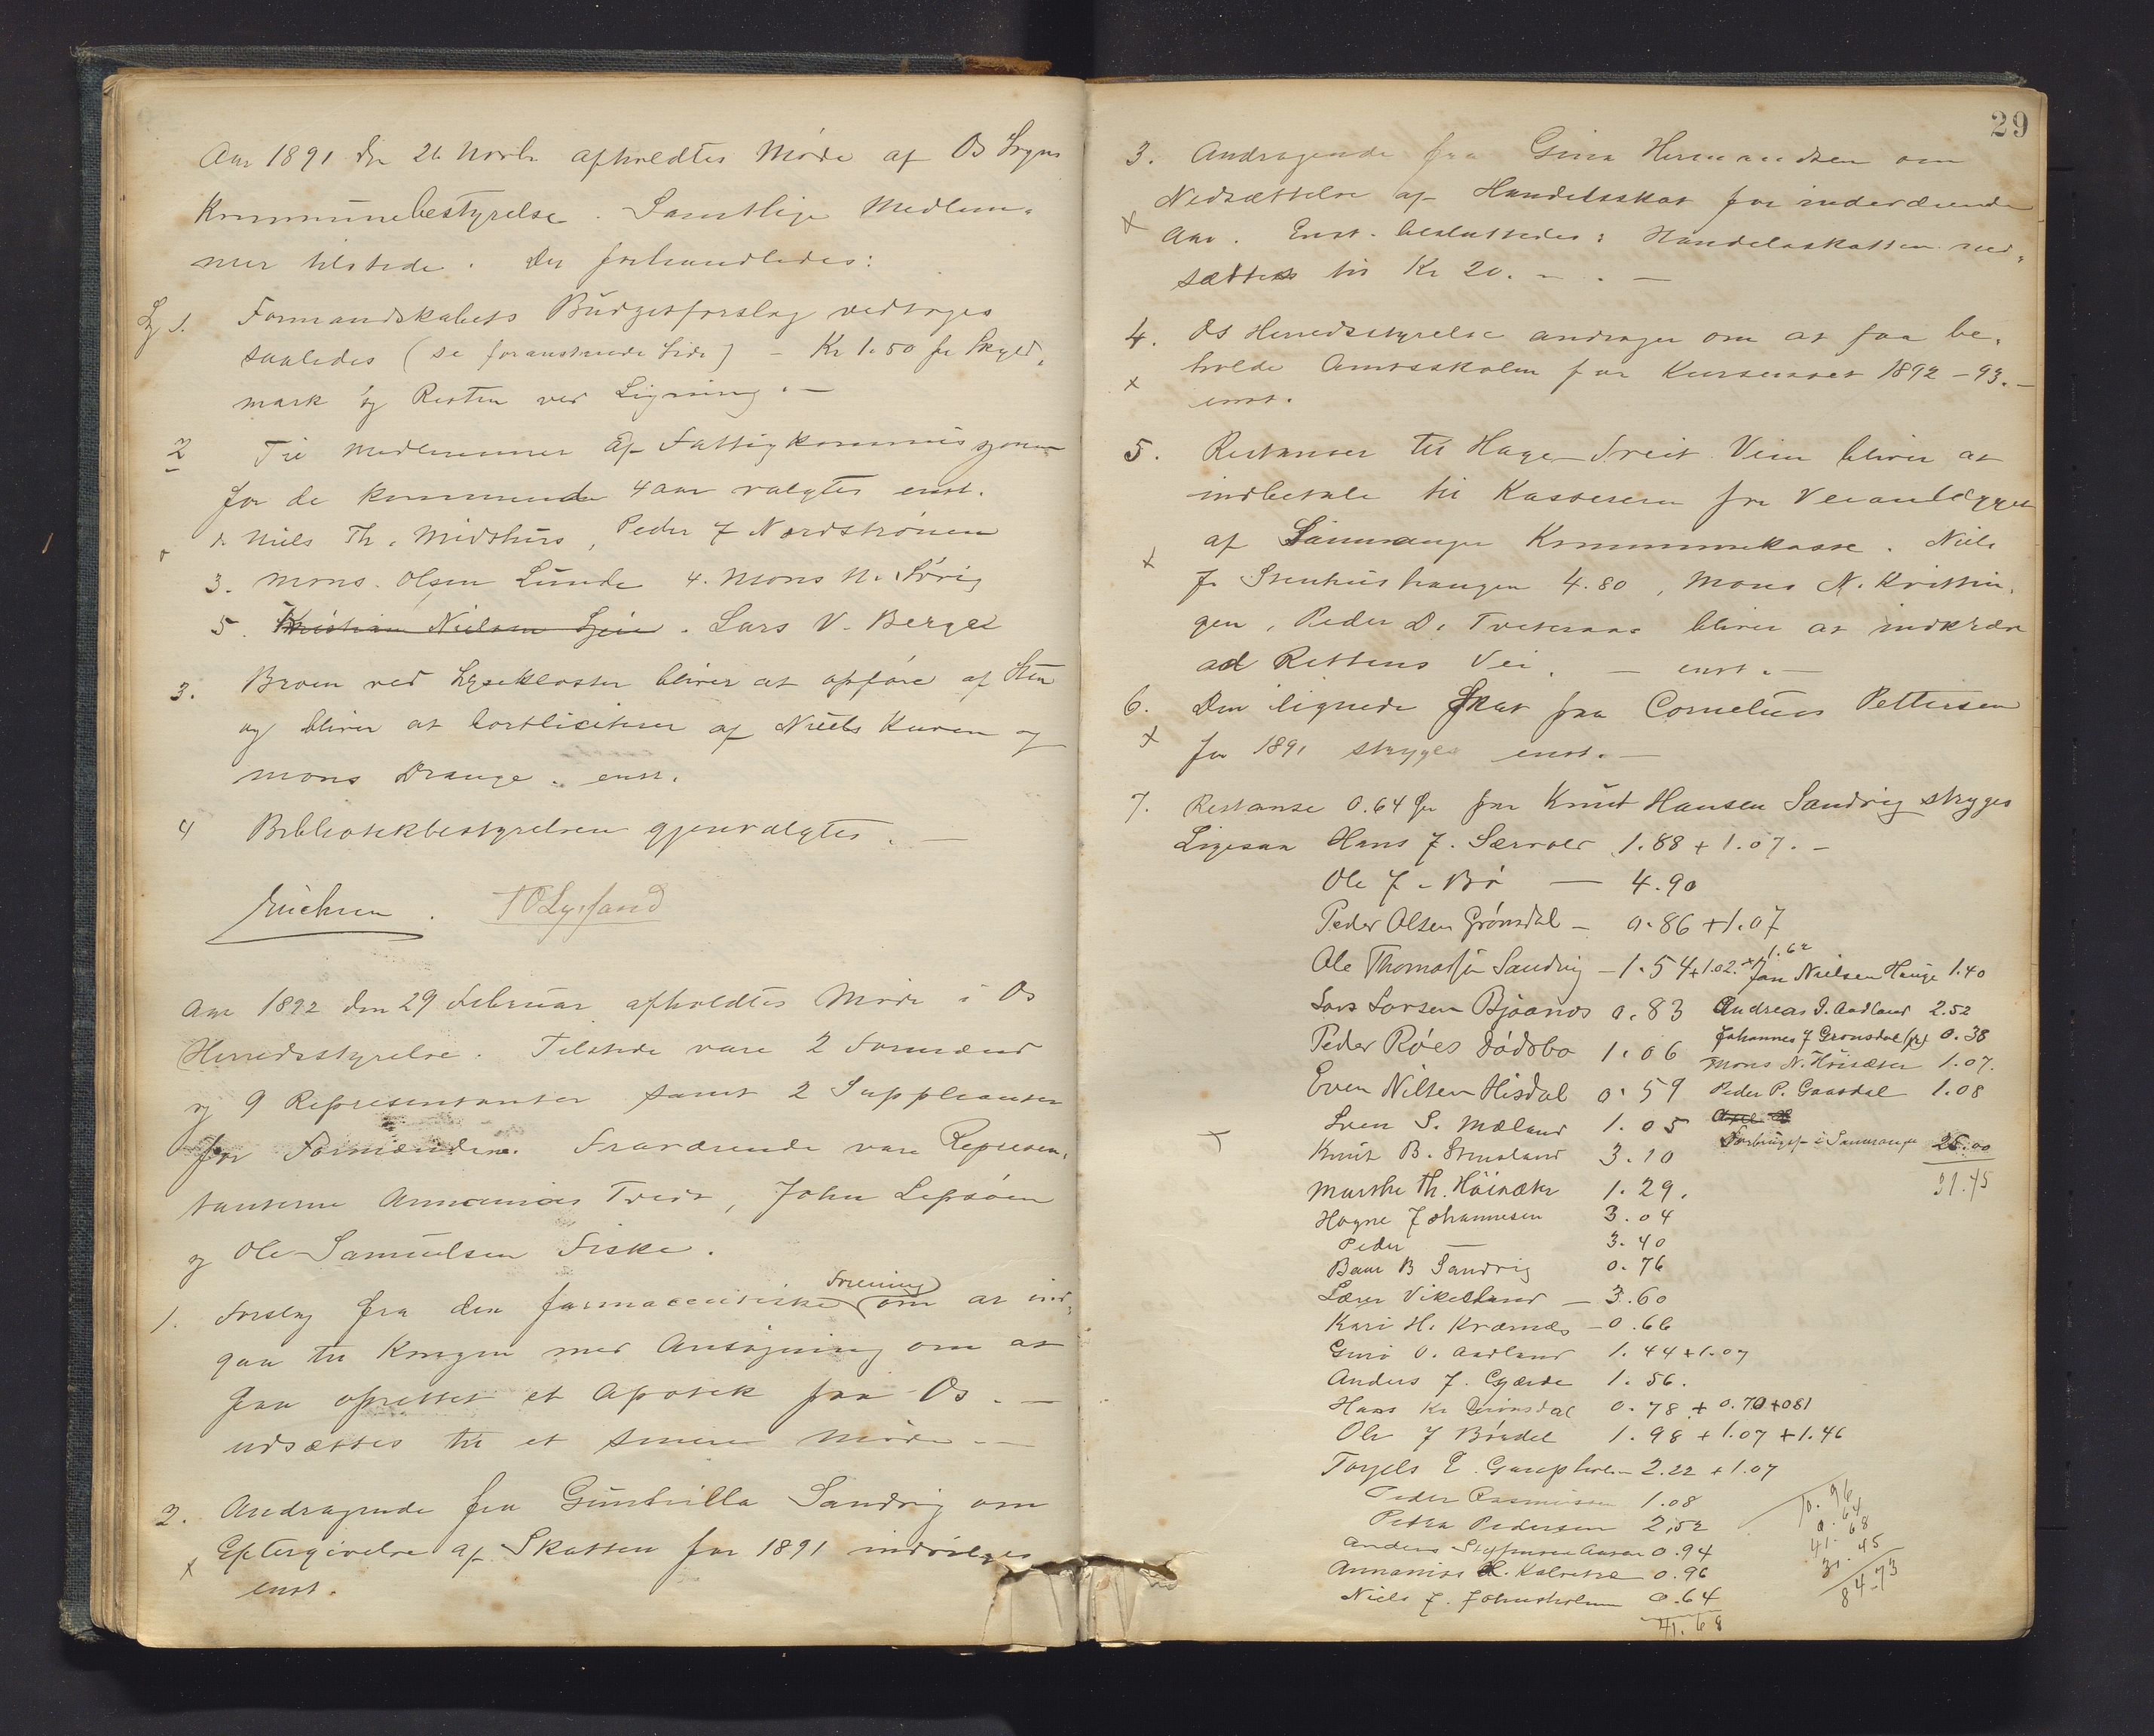 Aar 1891 den 26 Novbr afholdtes Møde af Os Sogns
Kommunebestyrelse. Samtlige Medlem-
mer tilstede. Der forhandledes:
1. Formandskabets Budgetforslag vedtoges
saaledes (se foranstaaende Side) - Kr 1.50 pr Skyld-
mark og Resten ved Ligning. -
2 Tie Medlemmer af Fattigkommissjonen
for de kommende 4 aar valgtes enst.
Niels Th. Midthus, Peder J Nordstrønen
3. Mons Olsen Lunde 4. Mons N. Søvig
5. Kristian Nielsen Lien. Lars V. Berge
3. Broen ved Lysekloster bliver at opføre af Sten
og bliver at bortlicitere af Niels Kuven og
Mons Drange. enst.
4 Bibliotekbestyrelsen gjenvalgtes. -
TOLysfand
Aar 1892 den 29 Februar afholdtes Møde i Os
Herredsstyrelse. Tilstede vare 2 Formænd
og 9 Repræsentanter samt 2 Suppleanter
for Formændene. Fraværende vare Represen-
tanterne Annanias Tveit, John Lepsøen
og Ole Samuelsen Fiske.
1. Forslag fra den farmaceutiske Forening om at ind-
gaa til Kongen med Ansøgning om at
faa oprettet et Apotek paa Os. -
udsættes til et senere Møde -
2. Andragende fra Gunhilla Sandvig om
Eftergivelse af Skatten for 1891 indvilges
enst.
29
3. Andragende fra Gina Hermandsen om
Nedsættelse af Handelsskat for inderværende
x Aar. Enst. besluttedes: Handelsskatten ned-
sættes til Kr 20. -
4. Os Herredsstyrelse andrager om at faa be-
x holde Amtsskolen for Kursusaaret 1892-93. -
enst.
5. Restanser til Hage-Tveit Veien bliver at
indbetale til Kassereren for Veianlægget
x af Samnanger Kommunekasse. Niels
J. Stenhushaugen 4.80, Mons N. Kvittin-
gen, Peder D. Tveteraas bliver at indkræve
ad Rettens Vei. - enst. -
6. Den lignede Skat paa Cornelius Pettersen
x for 1891 stryges enst. -
7. Restanse 0.64 Øre paa Knut Hansen Sandvig stryges
Ligesaa Hans J. Særvold 1.88 + 1.07. -
Ole J. Bø - 4.90
Peder Olsen Grønsdal - 0.86 + 1.07
Ole Thomassen Sandvig - 1.54 + 1.02. + 1.62
Jan Nielsen Hauge 1.40
Lars Larsen Bjøanes 0.83 Andreas I. Aadland 2.52
Peder Røes Dødsbo 1.06 Johannes J Grønsdal 0.38
Mons N. Høisæter 1.07.
Even Nilsen Hisdal 0.59 Peder P. Gaasdal 1.08
Sven S. Mæland 1.05
x Knut B. Stensland 3.10 i Samnanger 25.00
Marthe Th. Høisæter 1.29. 31.45
Hogne Johannesen 3.04
Peder - 3.40
Baar B Sandvig 0.76
Lærer Vikesland - 3.60
Kari H. Kvarnæs - 0.66
Guro O. Aadland 1.44 + 1.07
Anders J. Gjærde 1.56.
Hans Kr Grønsdal 0.78 + 0.70 + 081
Ole J Bøndel 1.98 + 1.07 + 1.46
Torgels E. Gaupholm 2.22 + 1.07
Peder Rasmussen 1.08
Petra Pedersen 2,52
Anders 0.94
Annanias Kalvetræ 0.96
Niels J. Johnsholmen 0.64
41.68
10.96
0.64
41.68
31.45
84.73